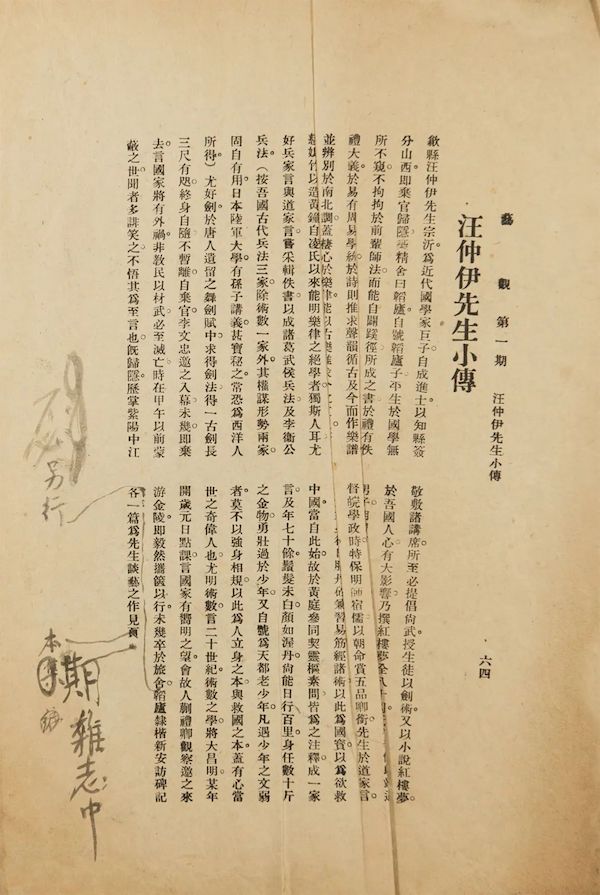 藝觀第一期 汪仲伊先生小傳
六四
汪仲伊先生小傳
歙縣汪仲伊先生宗沂。爲近代國學家巨子。自成進士。以知縣簽
分山西。卽棄官歸隱。葺精舍曰韜廬。自號韜廬子。平生於國學無
所不窺。不拘拘於前輩師法。而能自闢蹊徑。所成之書。於禮有佚
禮大義。於易有周易學統。於詩則推求聲韻。循古及今而作樂譜
並辨別於南北調。蓋棲心於樂律。能以古樂
竹以造黃鐘。自凌氏以來。能明樂律之絕學者。獨斯人耳。尤
好兵家言與道家言。嘗采輯佚書。以成諸葛武侯兵法及李衞公
兵法。（按吾國古代兵法三家。除術數一家外。其權謀形勢兩家。
固自有用。日本陸軍大學。有孫子講義。甚寶秘之。常恐爲西洋人
所得）尤好劍。於唐人遺留之舞劍賦中。求得劍法。得一古劍。長
三尺有咫。終身自隨。不暫離。自棄官。李文忠邀之入幕。未幾卽棄
去。言國家將有外禍。非敎民以材武。必至滅亡。時在甲午以前。蒙
蔽之世。聞者多誹笑之。不悟其爲至言也。旣歸隱。歷掌紫陽中江
敬敷諸講席。所至必提倡尙武。授生徒以劍術。又以小說紅樓夢。
於吾國人心有大影響。乃撰紅樓夢全八十
男子
督皖學政時。特保明師宿儒。以朝命賞五品卿銜。先生於道家言
習易筋經諸術。以此爲國寶。以爲欲救
中國。當自此始。故於黃庭參同契靈樞素問。皆爲之注釋。成一家
言。及年七十餘。鬚髮未白。顏如渥丹。尙能日行百里。身任數十斤
之金物。勇壯過於少年。又自號爲天都老少年。凡遇少年之文弱
者。莫不以強身相規。以此爲人立身之本。與救國之本。蓋有心當
世之奇偉人也。尤明術數。言二十世紀術數之學。將大昌明。某年
開歲元日點課。言國家有嚮明之望。會故人蒯禮卿觀察邀之來
游金陵。卽毅然攜篋以行。未幾卒於旅舍。韜廬隸楷新安訪碑記
各一篇。爲先生談藝之作。見
另行
本
期雜志中